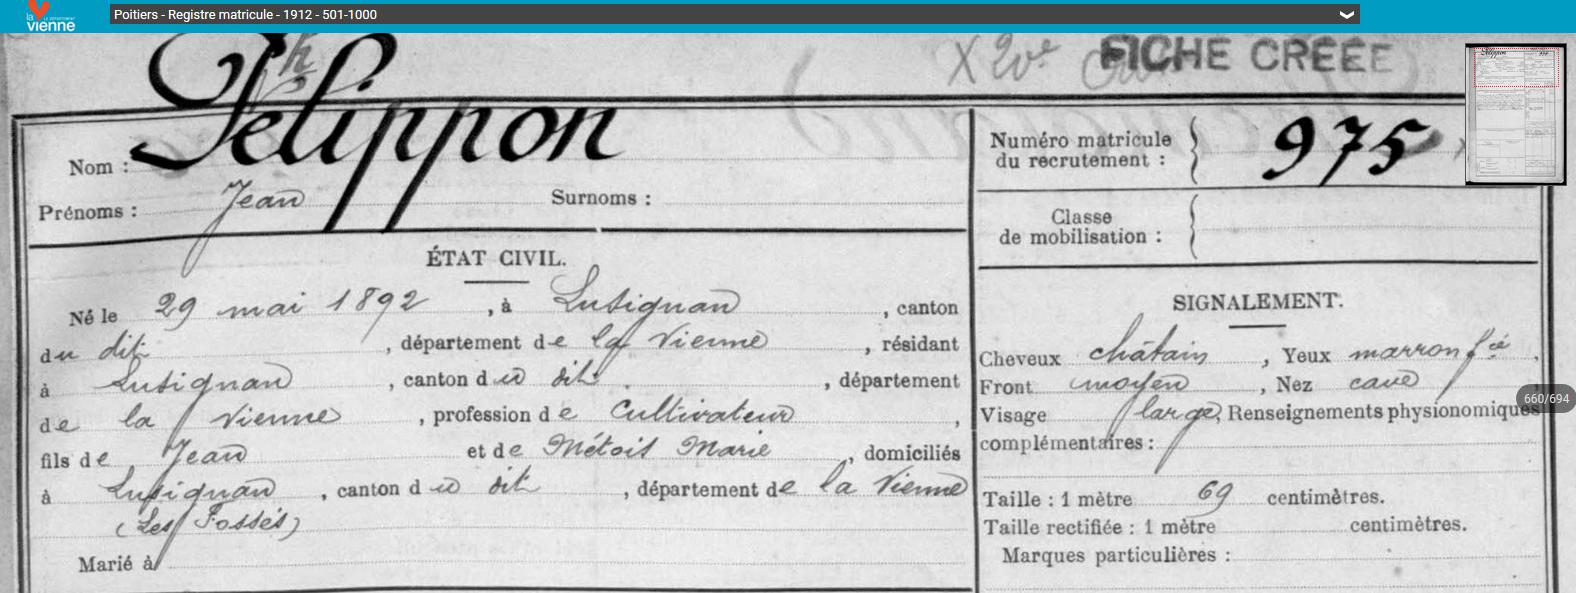 la vienne
LE DÉPARTEMENT
Poitiers - Registre matricule - 1912 - 501-1000
Xh
FICHE CRÉÉE
Nom : Pélippon
Prénoms : Jean Surnoms :
Numéro matricule du recrutement : 975
Classe de mobilisation :
ÉTAT CIVIL.
Né le 29 mai 1892, à Lusignan, canton
du dit, département de la Vienne, résidant
à Lusignan, canton du dit, département
de la Vienne, profession de cultivateur,
fils de Jean et de Métois Marie, domiciliés
à Lusignan, canton du dit, département de la Vienne
(Les Fossés)
Marié à
SIGNALEMENT.
Cheveux châtain, Yeux marron fcé,
Front moyen, Nez cave
Visage large, Renseignements physionomiques
complémentaires :
Taille : 1 mètre 69 centimètres.
Taille rectifiée : 1 mètre centimètres.
Marques particulières :
660/694